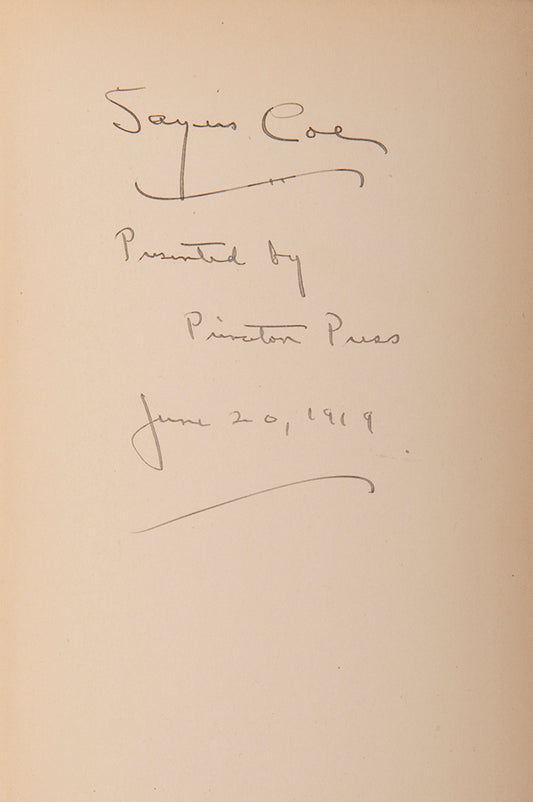 Sayers Coe
Presented by
Princeton Press
June 20, 1919